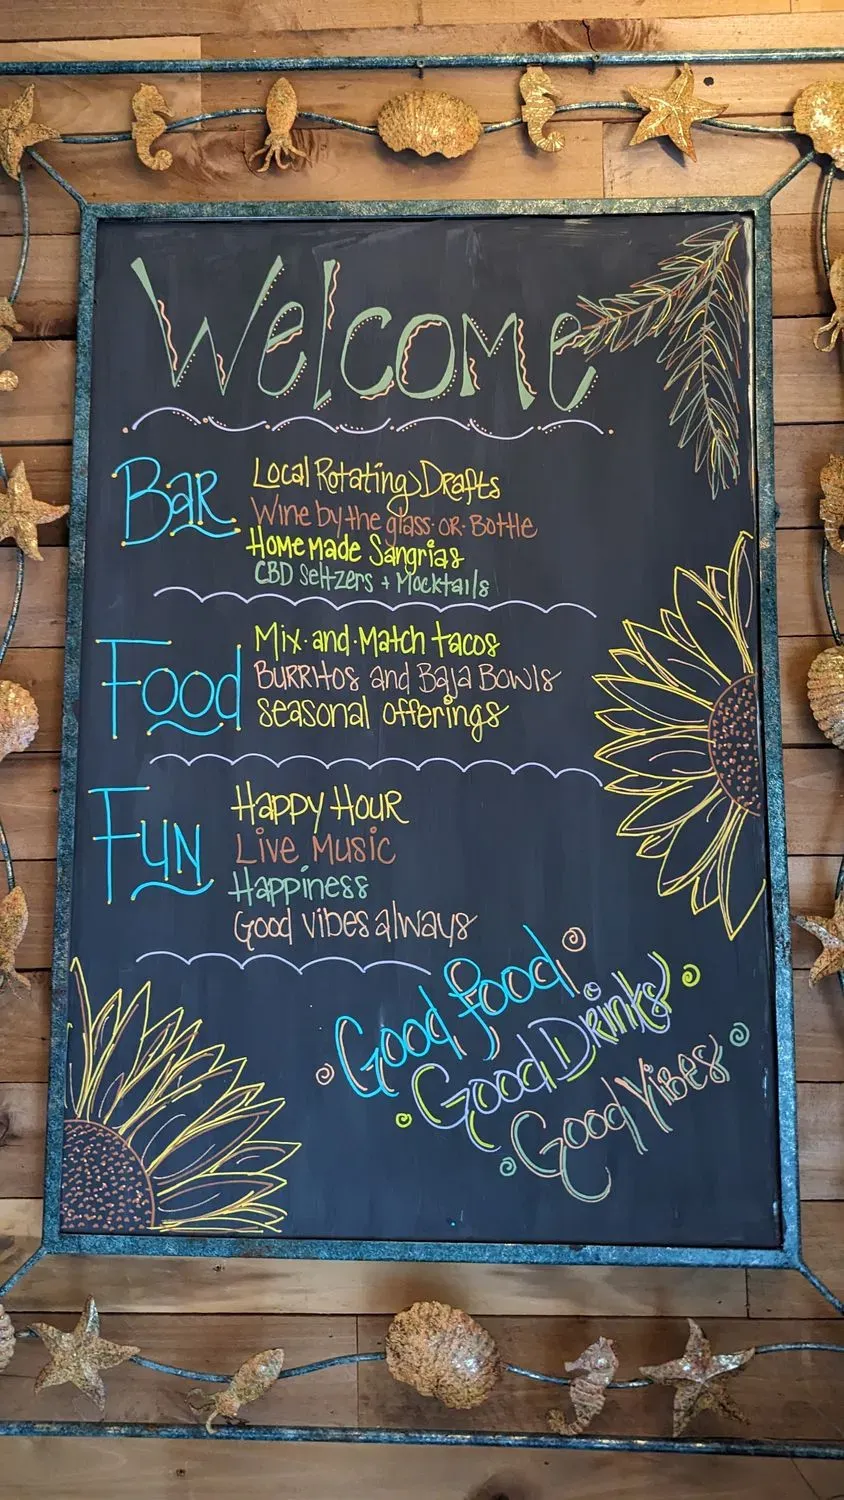 Welcome
Bar
Local Rotating Drafts
Wine by the glass or Bottle
Homemade Sangrias
CBD Seltzers + Mocktails
Food
Mix-and-Match tacos
Burritos and Baja Bowls
Seasonal offerings
Fun
Happy Hour
Live Music
Happiness
Good vibes always
Good food
Good Drinks
Good Vibes